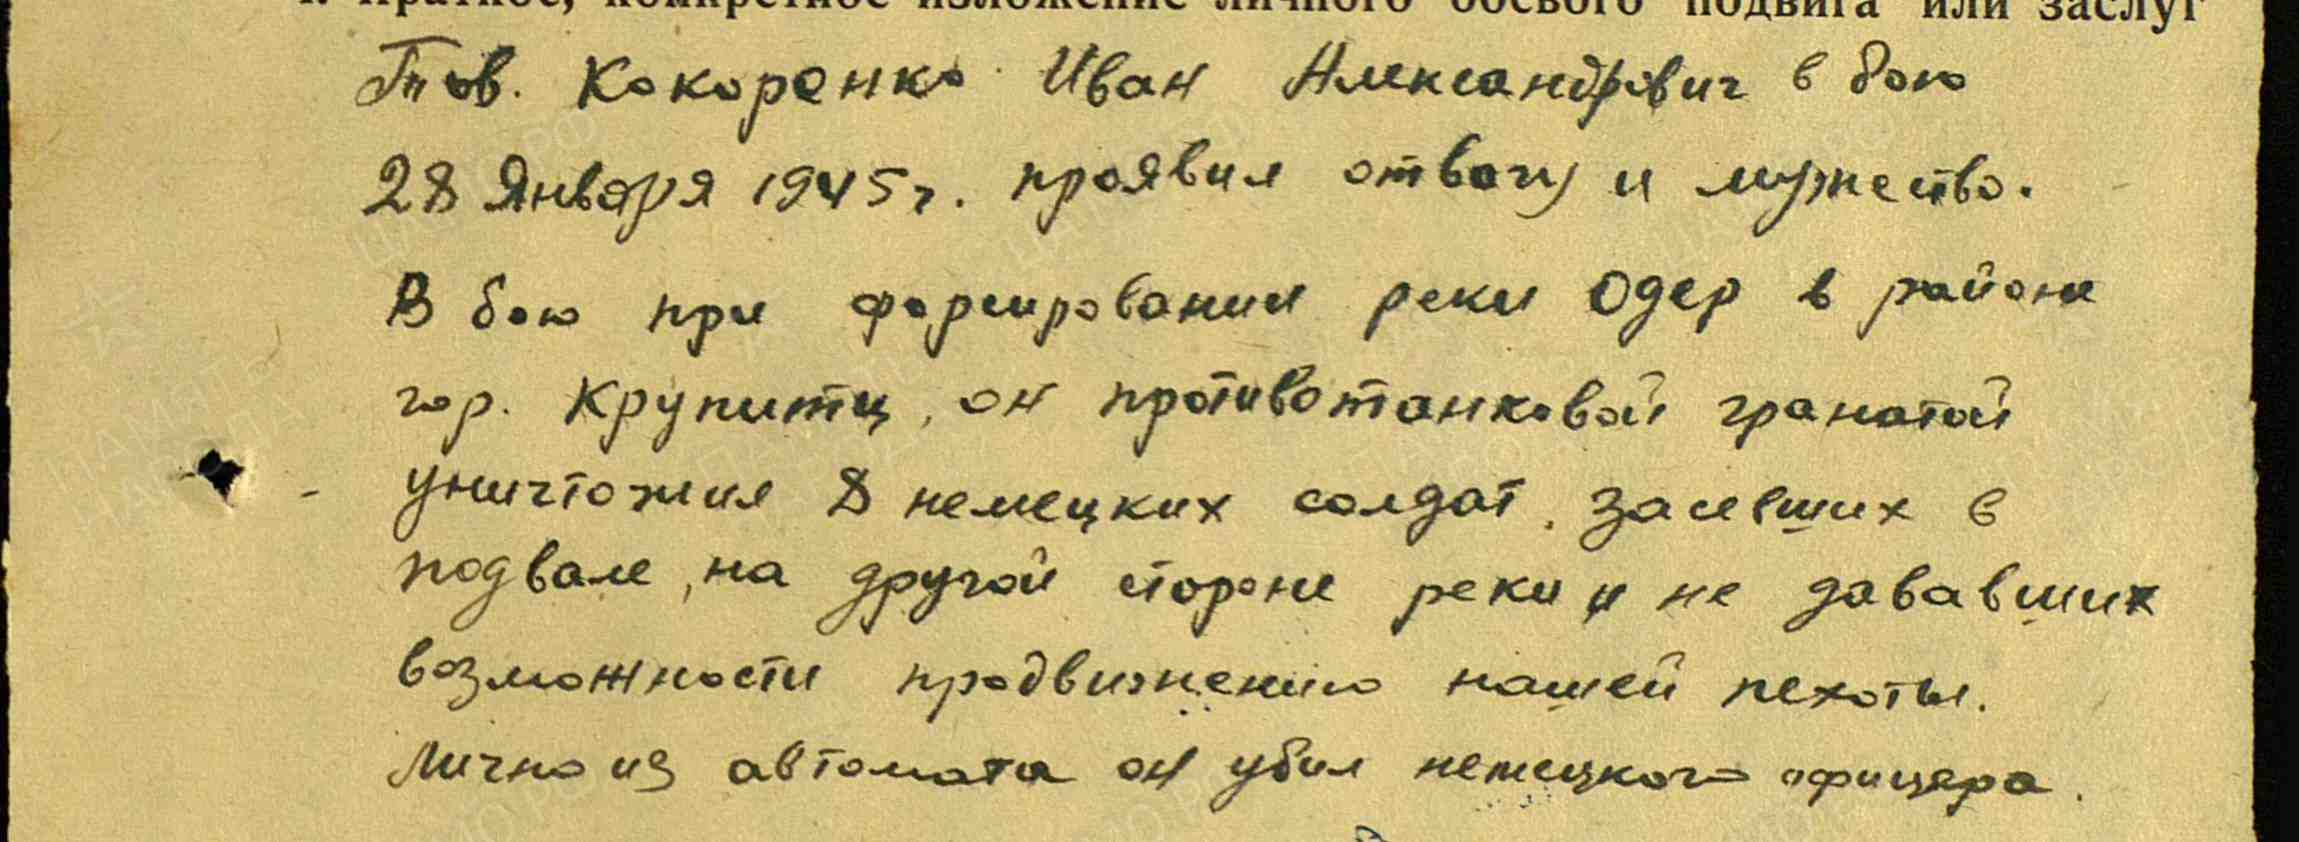 1. Краткое, конкретное изложение личного боевого подвига или заслуг
Тов. Кокоренко Иван Александрович в бою
28 Января 1945 г. проявил отвагу и мужество.
В бою при форсировании реки Одер в районе
гор. Крупитц, он противотанковой гранатой
уничтожил 8 немецких солдат, засевших в
подвале, на другой стороне реки и не дававших
возможности продвижению нашей пехоты.
Лично из автомата он убил немецкого офицера.